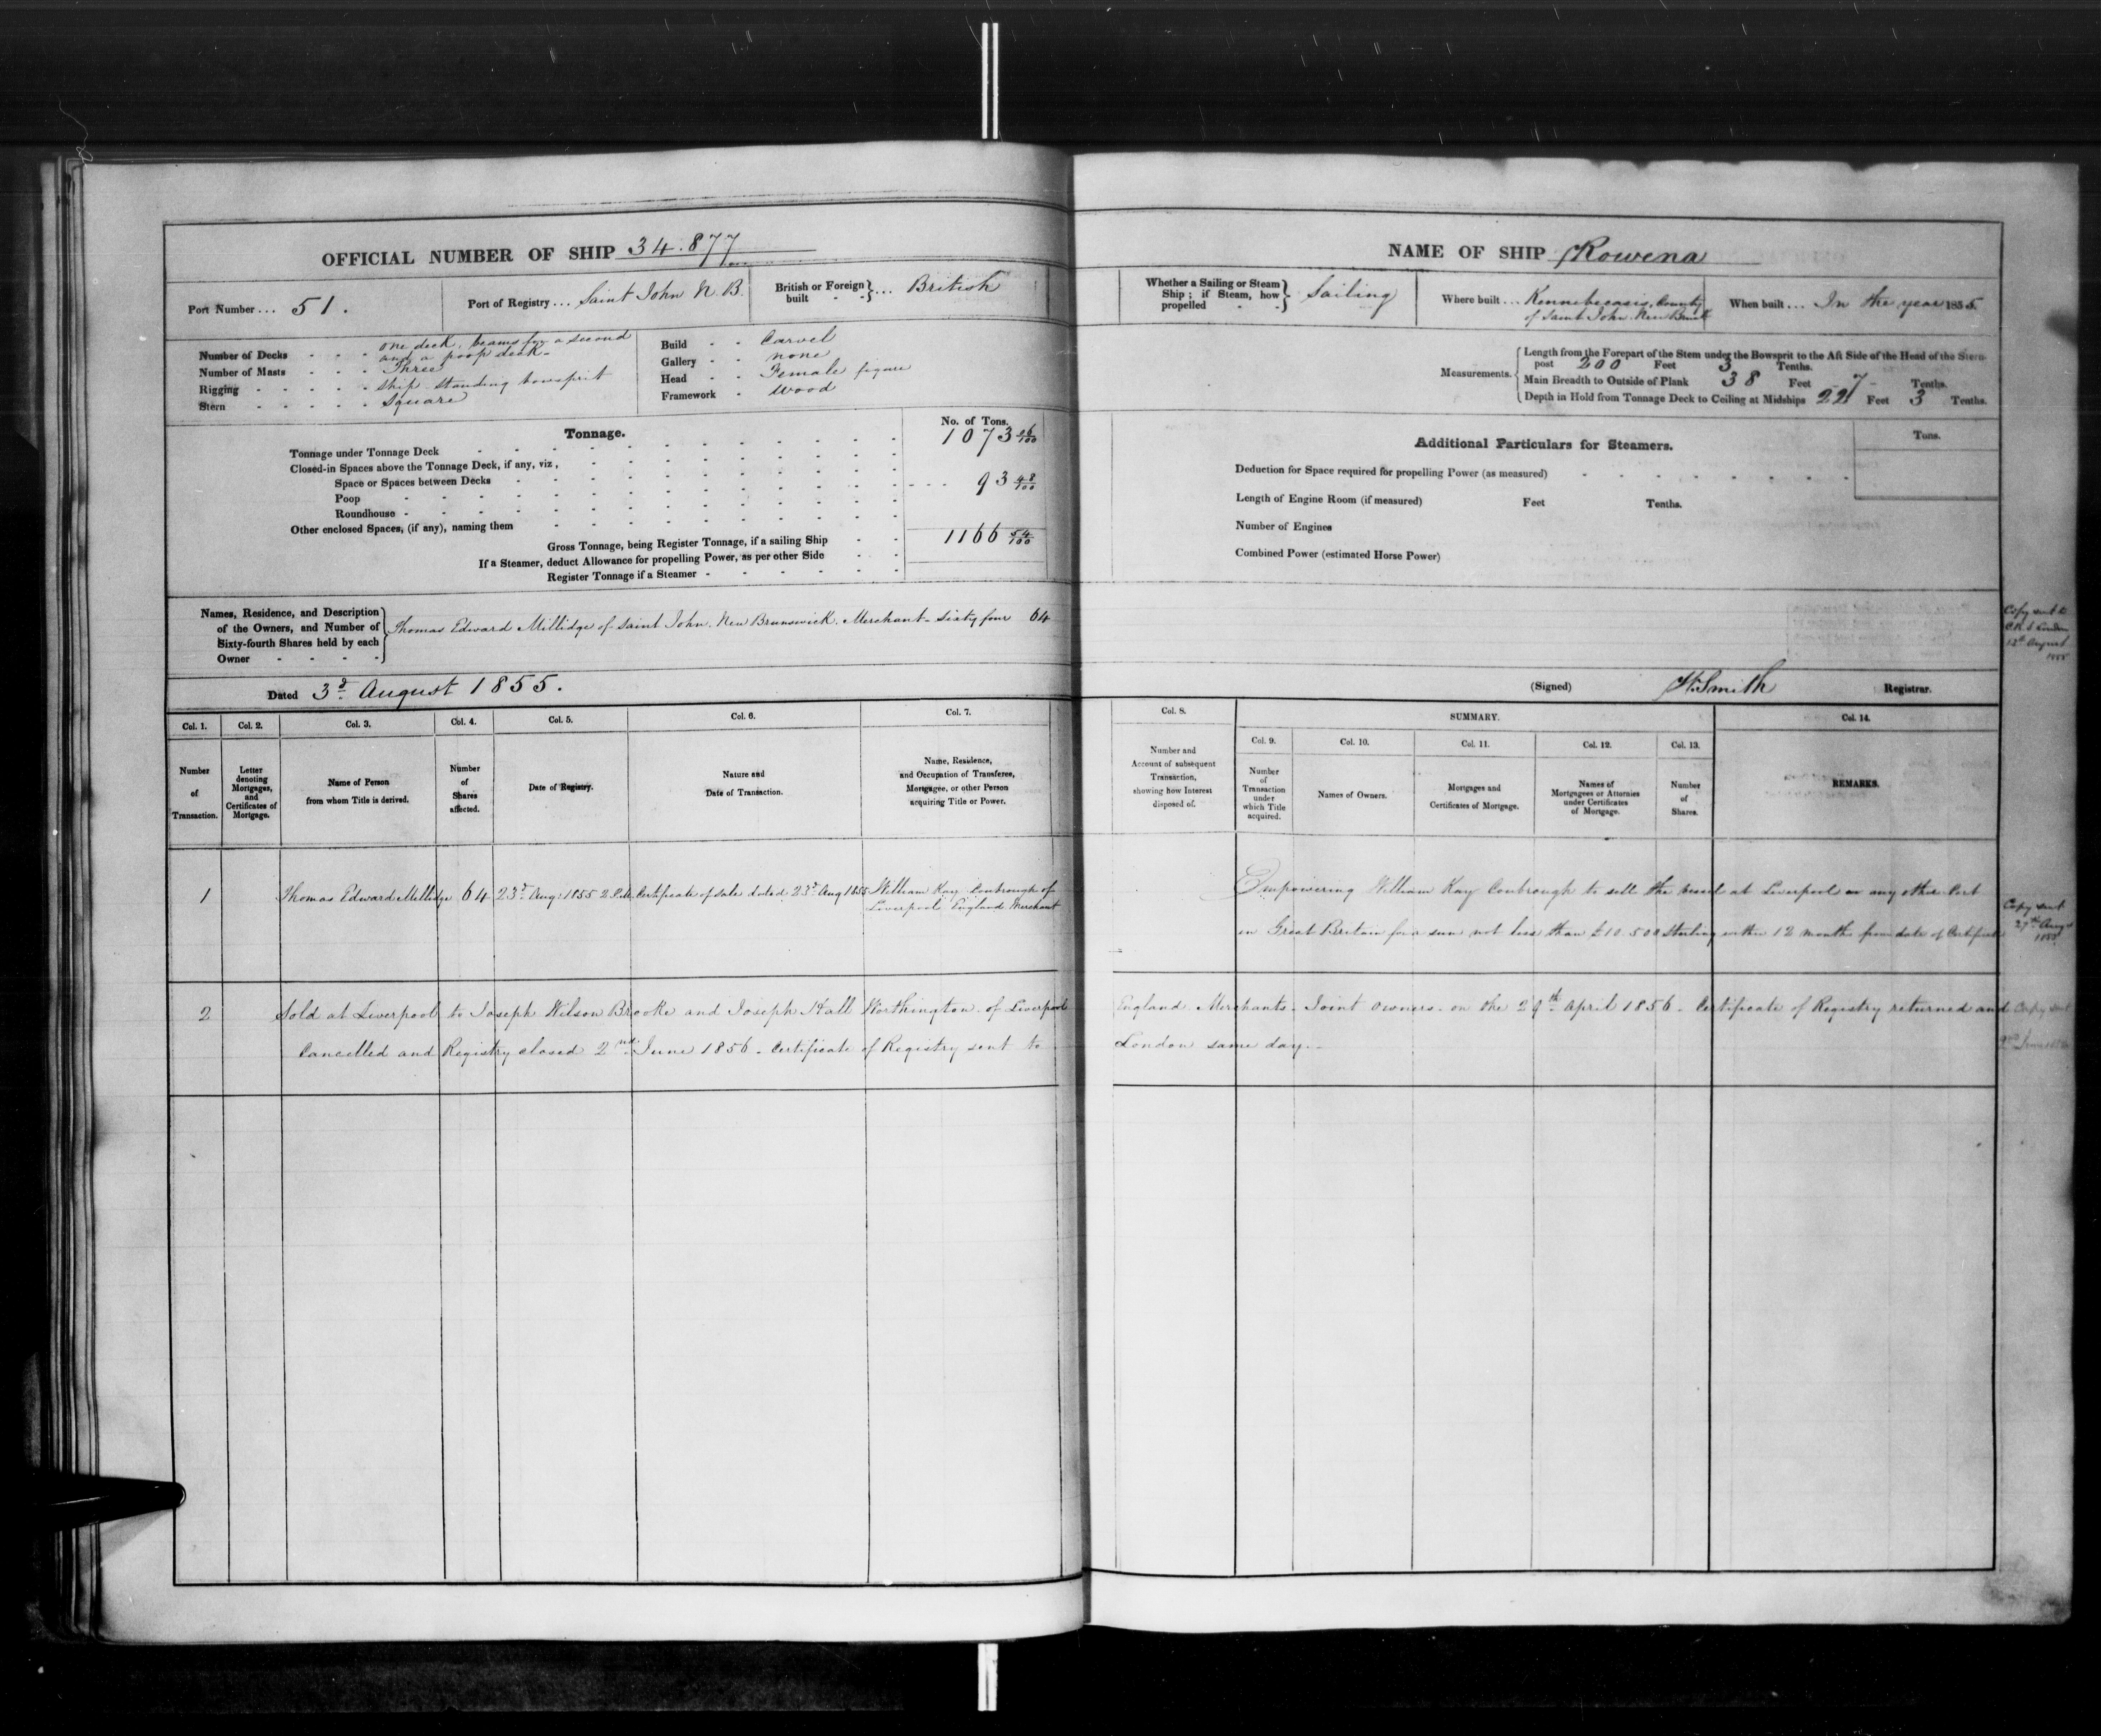 OFFICIAL NUMBER OF SHIP 34.877
Port Number ... 51.
Port of Registry ... Saint John N.B.
British or Foreign built - - } ... British
Number of Decks - - - one deck, beams for a second and a poop deck-
Number of Masts - - - Three
Rigging - - - - - ship standing bowsprit
Stern - - - - - Square
Build - - Carvel
Gallery - - none
Head - - Female figure
Framework - wood
Tonnage.
No. of Tons.
Tonnage under Tonnage Deck 1073 06/100
Closed-in Spaces above the Tonnage Deck, if any, viz,
Space or Spaces between Decks
Poop 93 48/100
Roundhouse
Other enclosed Spaces, (if any), naming them
Gross Tonnage, being Register Tonnage, if a sailing Ship 1166 54/100
If a Steamer, deduct Allowance for propelling Power, as per other Side
Register Tonnage if a Steamer
Names, Residence, and Description of the Owners, and Number of Sixty-fourth Shares held by each Owner } Thomas Edward Millidge of Saint John. New Brunswick. Merchant - Sixty four 64
Dated 3d August 1855.
Col. 1. Col. 2. Col. 3. Col. 4. Col. 5. Col. 6. Col. 7.
Number of Transaction.
Letter denoting Mortgages, and Certificates of Mortgage.
Name of Person from whom Title is derived.
Number of Shares affected.
Date of Registry.
Nature and Date of Transaction.
Name, Residence, and Occupation of Transferee, Mortgagee, or other Person acquiring Title or Power.
NAME OF SHIP Rowena
Whether a Sailing or Steam Ship; if Steam, how propelled - - } Sailing
Where built ... Kennebecasis, County of Saint John. New Bruns
When built ... In the year 1855
Measurements.
Length from the Forepart of the Stem under the Bowsprit to the Aft Side of the Head of the Stern-post 200 Feet 3 Tenths.
Main Breadth to Outside of Plank 38 Feet 7 Tenths.
Depth in Hold from Tonnage Deck to Ceiling at Midships 22 Feet 3 Tenths.
Additional Particulars for Steamers.
Tons.
Deduction for Space required for propelling Power (as measured)
Length of Engine Room (if measured) Feet Tenths.
Number of Engines
Combined Power (estimated Horse Power)
Copy sent to
C.R.S London
13th August
1855
(Signed) H. Smith Registrar.
Col. 8. SUMMARY. Col. 14.
Col. 9. Col. 10. Col. 11. Col. 12. Col. 13.
Number and Account of subsequent Transaction, showing how Interest disposed of.
Number of Transaction under which Title acquired.
Names of Owners.
Mortgages and Certificates of Mortgage.
Names of Mortgagees or Attornies under Certificates of Mortgage.
Number of Shares.
REMARKS.
1 Thomas Edward Millidge 64 23d Aug: 1855 2 P.M. Certificate of sale dated 23d Aug 1855 William Kay Conbrough of
Liverpool England Merchant
Empowering William Kay Conbrough to sell the vessel at Liverpool or any other Port
in Great Britain for a sum not less than £10.500 Sterling within 12 months from date of Certificate
Copy sent
27th Aug
1855
2 Sold at Liverpool to Joseph Wilson Brooke and Joseph Hall Worthington of Liverpool England Merchants - Joint Owners - on the 29th April 1856 - Certificate of Registry returned and
Cancelled and Registry closed 2nd June 1856 - Certificate of Registry sent to London same day -
Copy sent
2nd June 1856